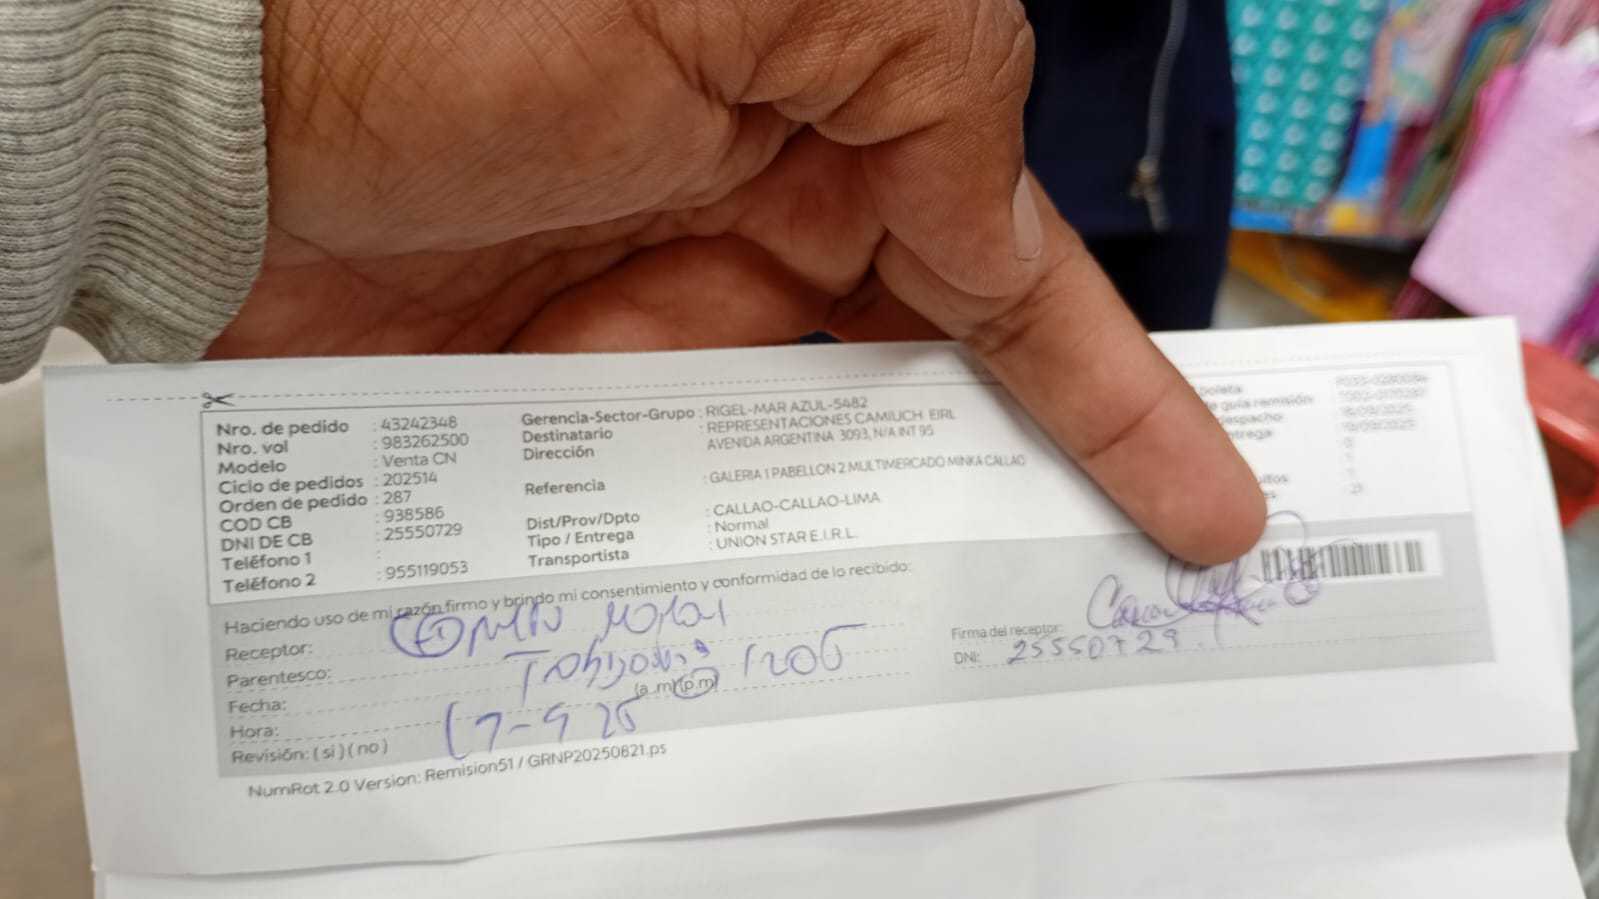 Nro. de pedido : 43242348
Nro. vol : 983262500
Modelo : Venta CN
Ciclo de pedidos : 202514
Orden de pedido : 287
COD CB : 938586
DNI DE CB : 25550729
Teléfono 1 :
Teléfono 2 : 955119053
Gerencia-Sector-Grupo : RIGEL-MAR AZUL-5482
Destinatario : REPRESENTACIONES CAMIUCH EIRL
Dirección AVENIDA ARGENTINA 3093, N/A INT 95
Referencia : GALERIA 1 PABELLON 2 MULTIMERCADO MINKA CALLAO
Dist/Prov/Dpto : CALLAO-CALLAO-LIMA
Tipo / Entrega : Normal
Transportista : UNION STAR E.I.R.L.
guia remisión
18/09/2025
19/09/2025
0
1
21
Haciendo uso de mi razón firmo y brindo mi consentimiento y conformidad de lo recibido:
Receptor:
Parentesco:
Fecha:
Hora: (a .m)(p.m) 1205
17-9 25
Revisión: ( si ) ( no )
Firma del receptor:
DNI: 25550729
NumRot 2.0 Version: Remision51 / GRNP20250821.ps